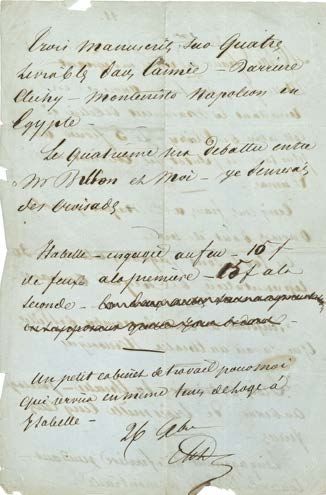 Trois manuscrits sur Quatre
livrables dans l'année - Barrière
Clichy - Montenotte Napoleon en
Egypte -
Le Quatrieme sera debattu entre
Mr Billion et Moi - je
des Croisades
Isabelle - engagée au feu - 10 f
de feux a la première - 15 f a la
seconde -
Un petit cabinet de travail pour moi
qui servira en même tems de loge à
Isabelle -
26 9bre